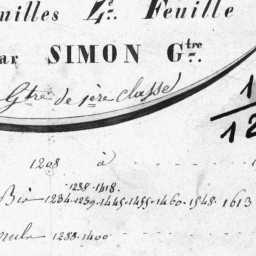 uilles 4e Feuille
ar SIMON Gtre.
Gtre de 1ère classe
1
12
1208 à
1238.1418.
1234-1239-1445-1455-1460-1548-1613
1283-1400